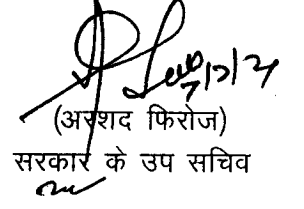 (अरशद फिरोज)
सरकार के उप सचिव